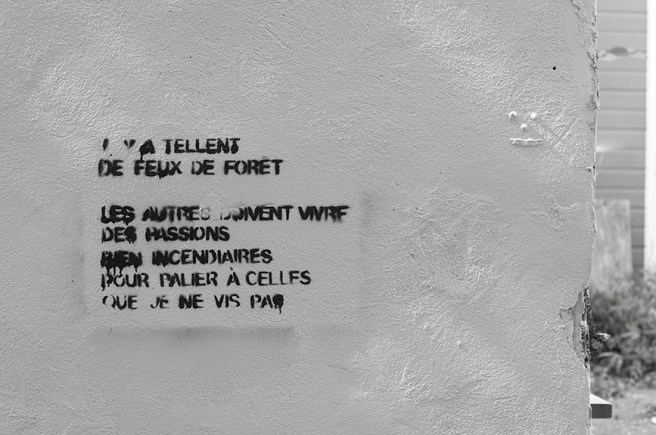 I Y A TELLENT
DE FEUX DE FORÊT
LES AUTRES DOIVENT VIVRE
DES PASSIONS
BIEN INCENDIAIRES
POUR PALIER À CELLES
QUE JE NE VIS PAS